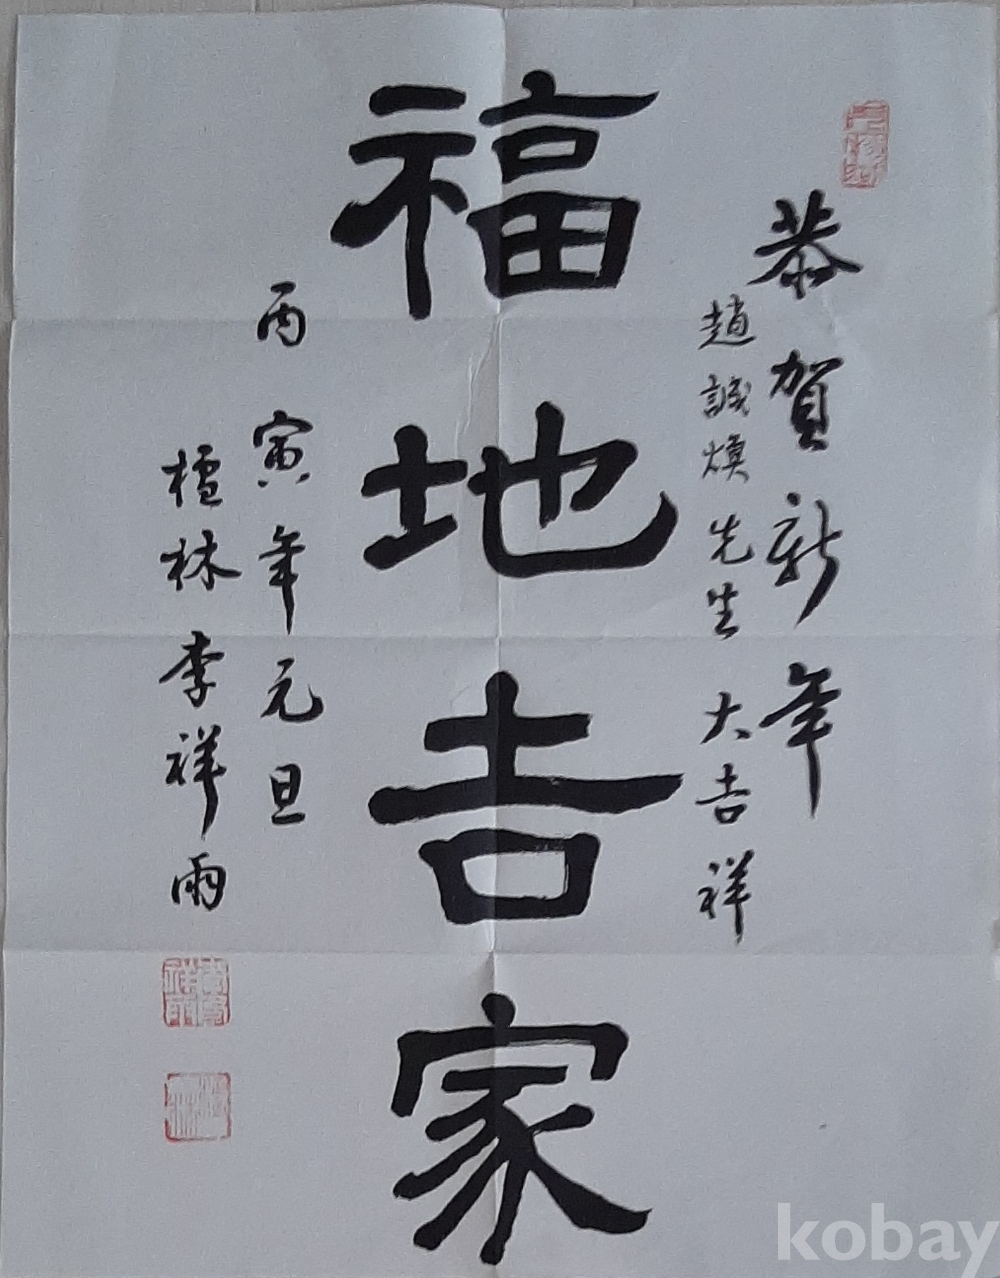 恭賀新年
趙誠煥先生大吉祥
福地吉家
丙寅年元旦
櫖林李祥雨
kobay